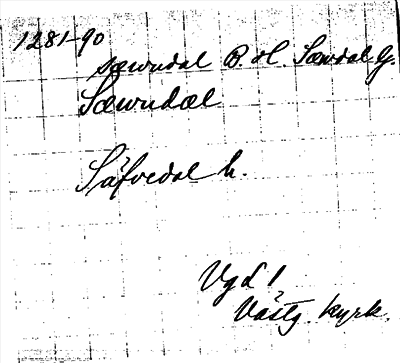 1281-90
sæwndal B. H. Sæwdal G.
Sæwndæl
Säfvedal h.
Vgd 1
Västg. kyrk.